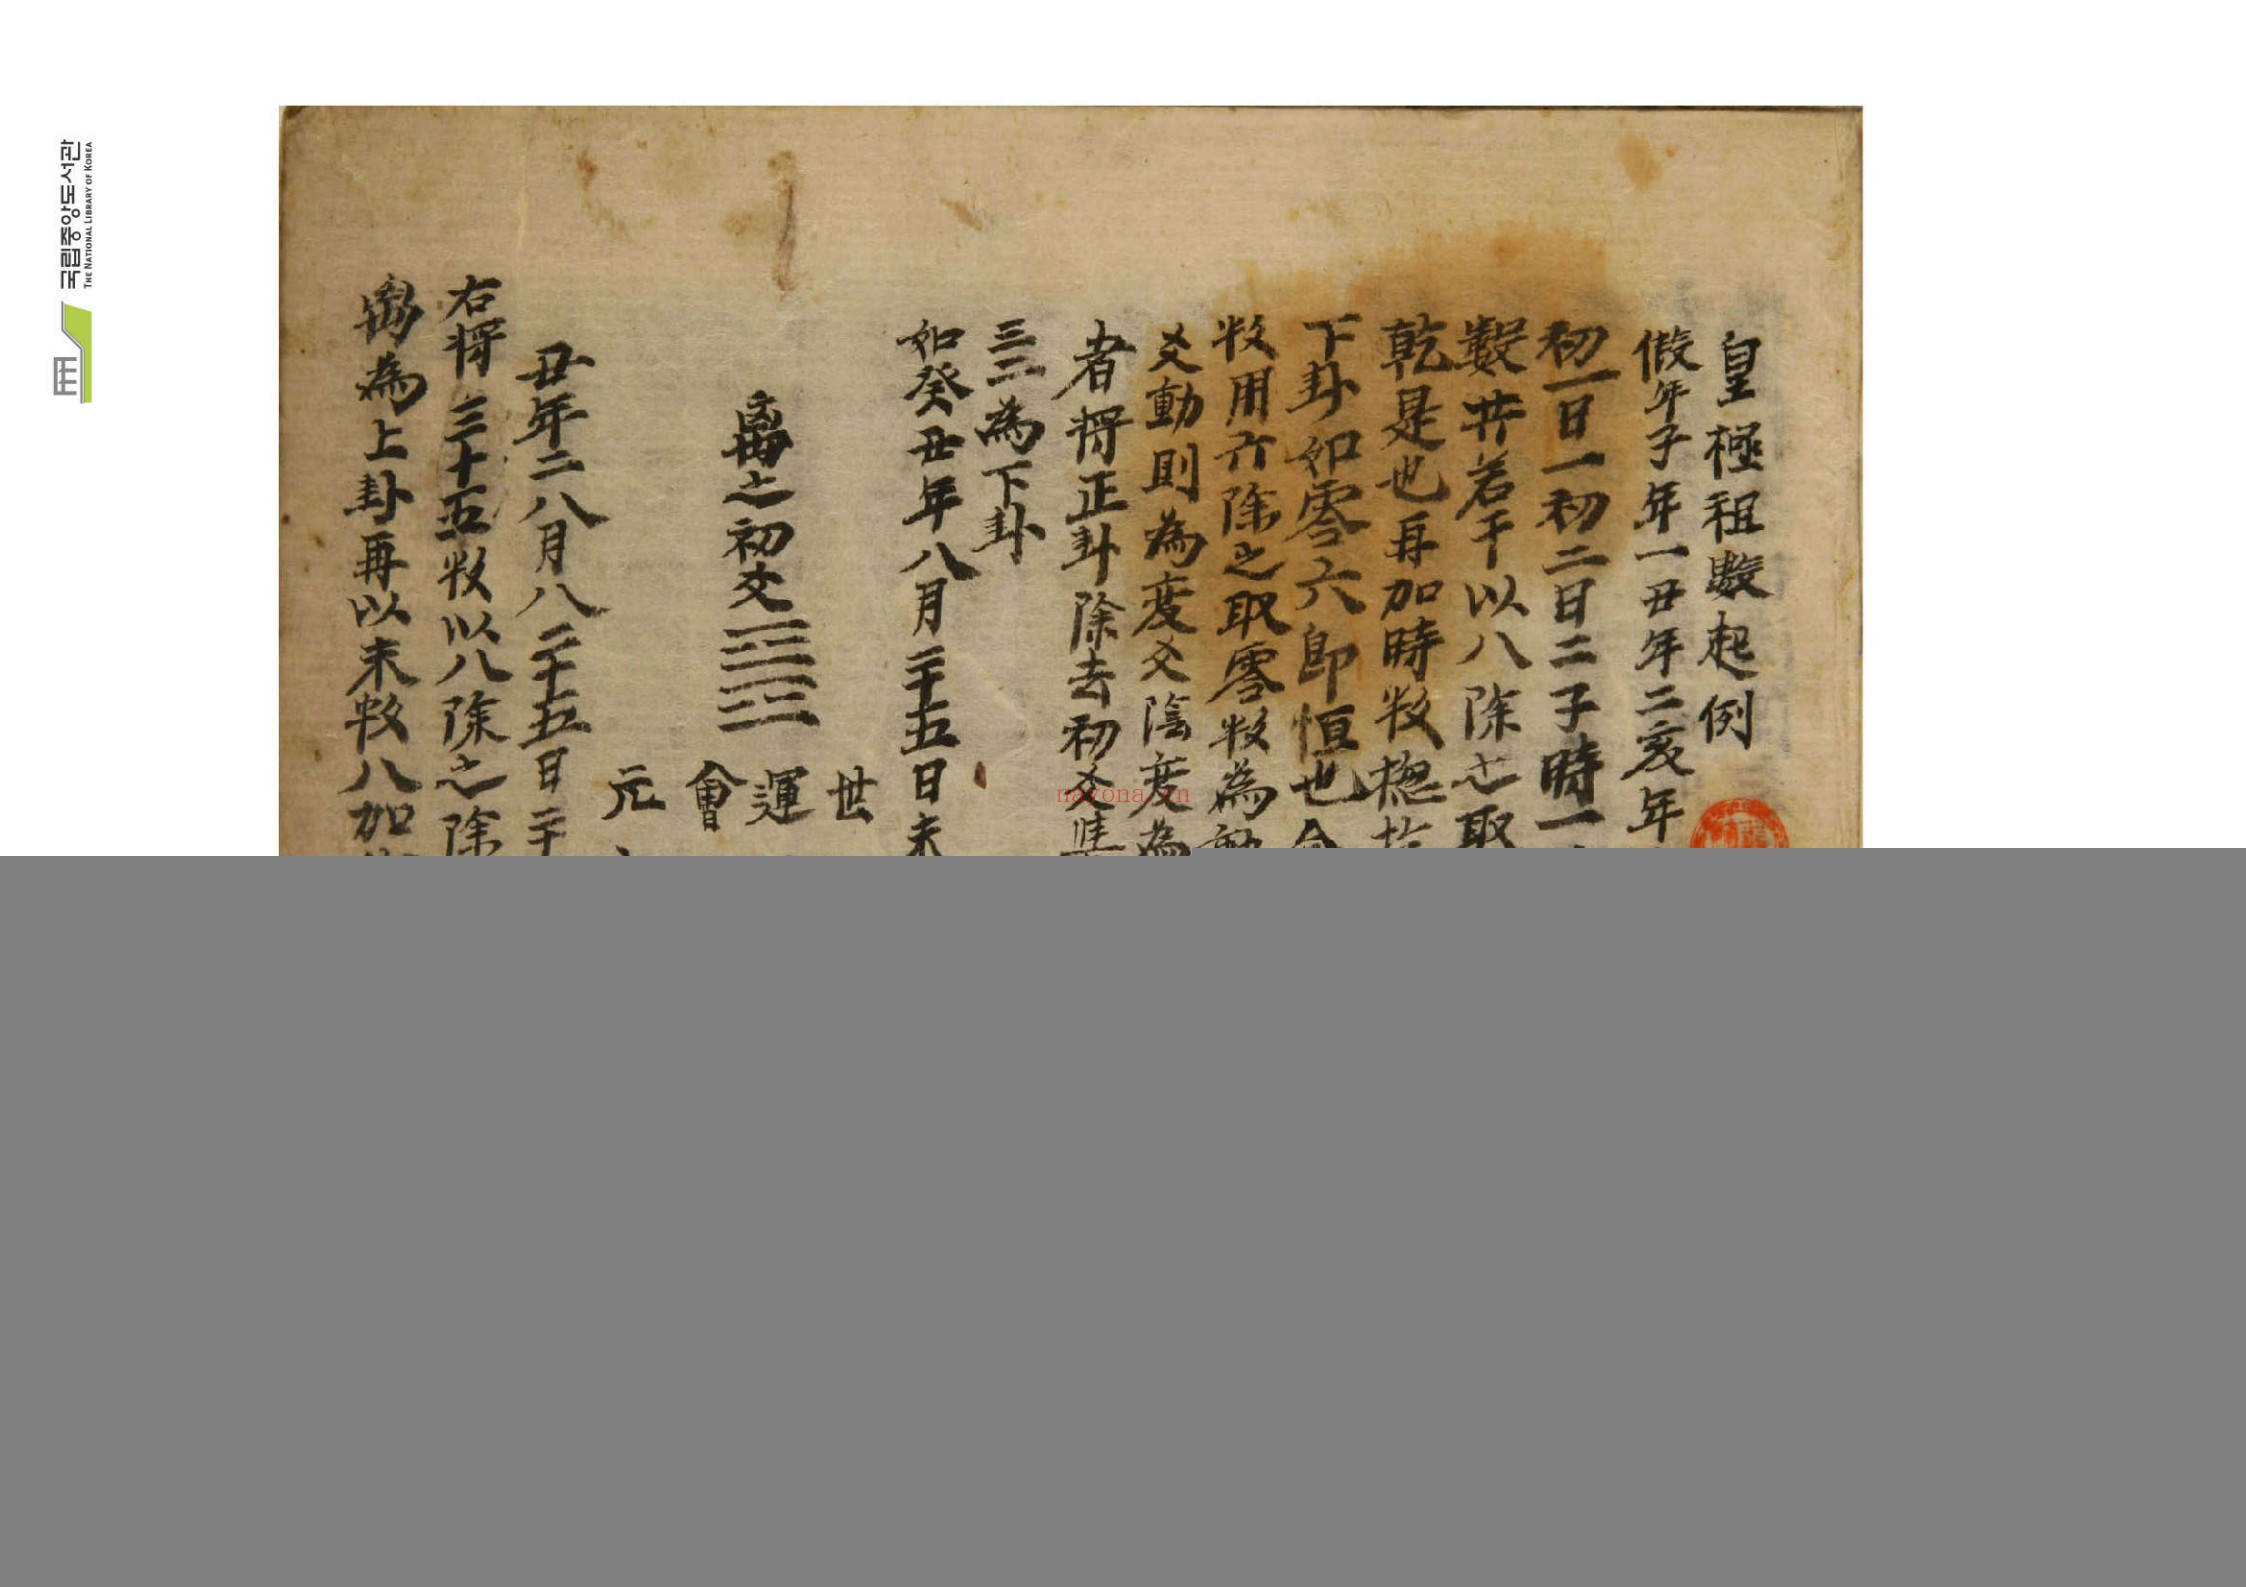 국립중앙도서관
THE NATIONAL LIBRARY OF KOREA
皇極祖數起例
假年子年一丑年二亥年
初一日一初二日二子時一
數共若干以八除之取
乾是也再加時数揔
下卦如零六即恒也
数用六除之取零数為動
爻動則為変爻陰変為
者將正卦除去初爻
三二為下卦
如癸丑年八月二十五日未
离之初爻
世
運
會
元
丑年二八月八二十五日二十
右将三十五数以八除之除
离為上卦再以未数八加
nayona.cn